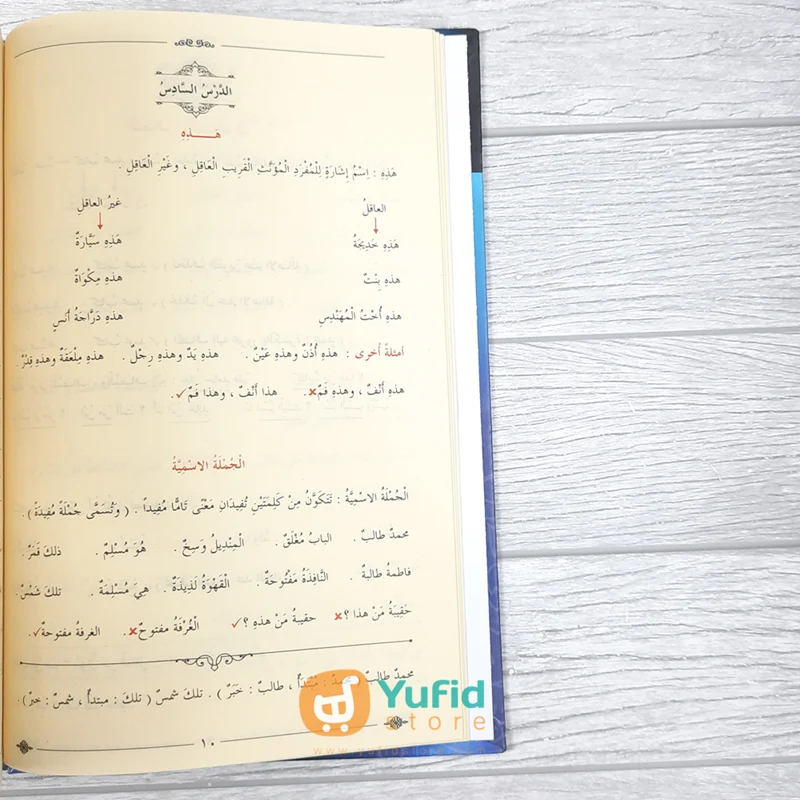 الدَّرْسُ السَّادِسُ
هَـــذِهِ
هَذِهِ : اِسْمُ إِشَارَةٍ لِلْمُفْرَدِ الْمُؤَنَّثِ الْقَرِيبِ الْعَاقِلِ ، وغَيْرِ الْعَاقِلِ .
العاقلُ غيرُ العاقلِ
هَذِهِ خَدِيجَةُ هَذِهِ سَيَّارَةٌ
هذهِ بِنْتٌ هذهِ مِكْوَاةٌ
هذهِ أُخْتُ الْمُهَنْدِسِ هذهِ دَرَّاجَةُ أَنَسٍ
أمثلةٌ أخرى : هذهِ أُذُنٌ وهذهِ عَيْنٌ . هذهِ يَدٌ وهذهِ رِجْلٌ . هذهِ مِلْعَقَةٌ وهذهِ قِدْرٌ .
هذهِ أَنْفٌ ، وهذهِ فَمٌ ✘. هذا أَنْفٌ ، وهذا فَمٌ ✓.
الْجُمْلَةُ الاسْمِيَّةُ
الْجُمْلَةُ الاسْمِيَّةُ : تَتَكَوَّنُ مِنْ كَلِمَتَيْنِ تُفِيدَانِ مَعْنًى تَامًّا مُفِيداً . ( وَتُسَمَّى جُمْلَةً مُفِيدَةً ) .
محمدٌ طالبٌ . البابُ مُغْلَقٌ . الْمِنْدِيلُ وَسِخٌ . هُوَ مُسْلِمٌ . ذلكَ قَمَرٌ .
فاطمةُ طالبةٌ . النَّافِذَةُ مَفْتُوحَةٌ . الْقَهْوَةُ لَذِيذَةٌ . هِيَ مُسْلِمَةٌ . تلكَ شَمْسٌ .
حَقِيبَةُ مَنْ هذا ؟ ✘ حقيبةُ مَنْ هذهِ ؟ ✓ الْغُرْفَةُ مفتوحٌ ✘. الغرفةُ مفتوحةٌ ✓.
محمدٌ طالبٌ : مُبْتَدَأٌ ، طالبٌ : خَبَرٌ ) . تلكَ شمسٌ ( تلكَ : مبتدأٌ ، شمسٌ : خبرٌ) .
Yufid
store
١٠